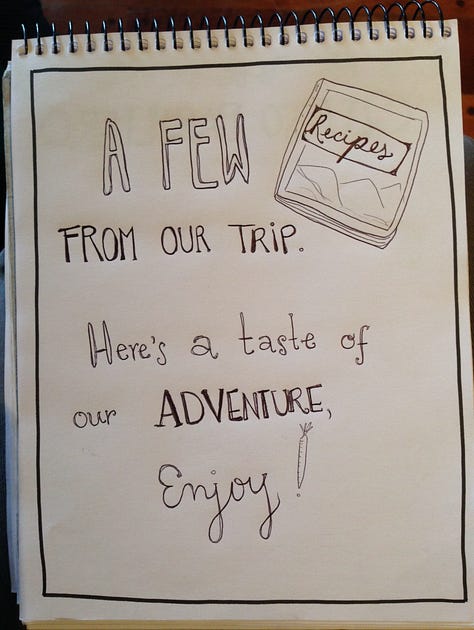 A FEW
Recipes
FROM OUR TRIP.
Here's a taste of
our ADVENTURE,
Enjoy!